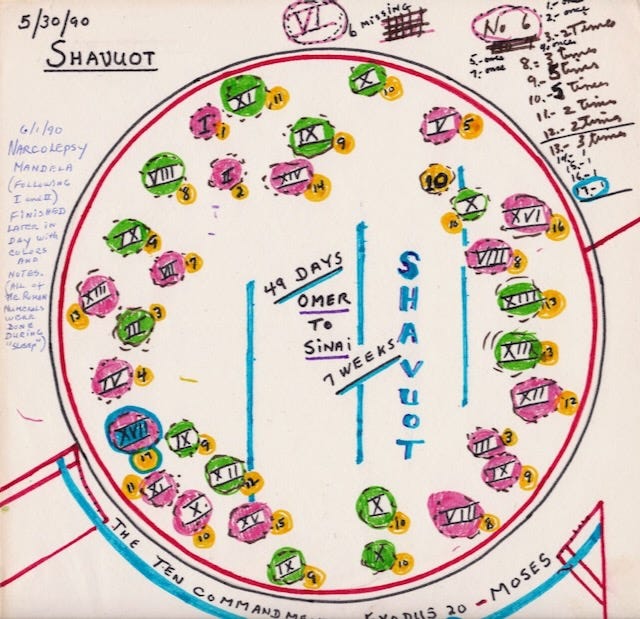 5/30/90
SHAVUOT
VI
6 MISSING
No 6
2- once
3.- 2 Times
5.- once
7.- once
8.- 3 times
9.- 5 times
10.- 5 times
11.- 2 times
12.- 2 times
13.- 3 times
14.- 1
15.- 1
16.- 1
17- 1
6/1/90
NARCOLEPSY
MANDELA
(FOLLOWING
I and II)
FINISHED
LATER in
DAY with
COLORS
AND
NOTES.
(ALL of
THE ROMAN
NUMERALS
WERE
DONE
DURING
"SLEEP")
XI 11
X 10
I 1
IX 9
V 5
VIII 8
II 2
XIV 14
10
X 10
XVI 16
IX 9
VII 7
VIII 8
XIII 13
III 3
XIII 13
IV 4
XIII 13
XII 12
XVII 17
IX 9
III 3
XII 12
IX 9
XI 11
X 10
XV 15
X 10
VIII 8
IX 9
X 10
49 DAYS
OMER
TO
SINAI
7 WEEKS
SHAVUOT
THE TEN COMMANDME EXODUS 20 - MOSES